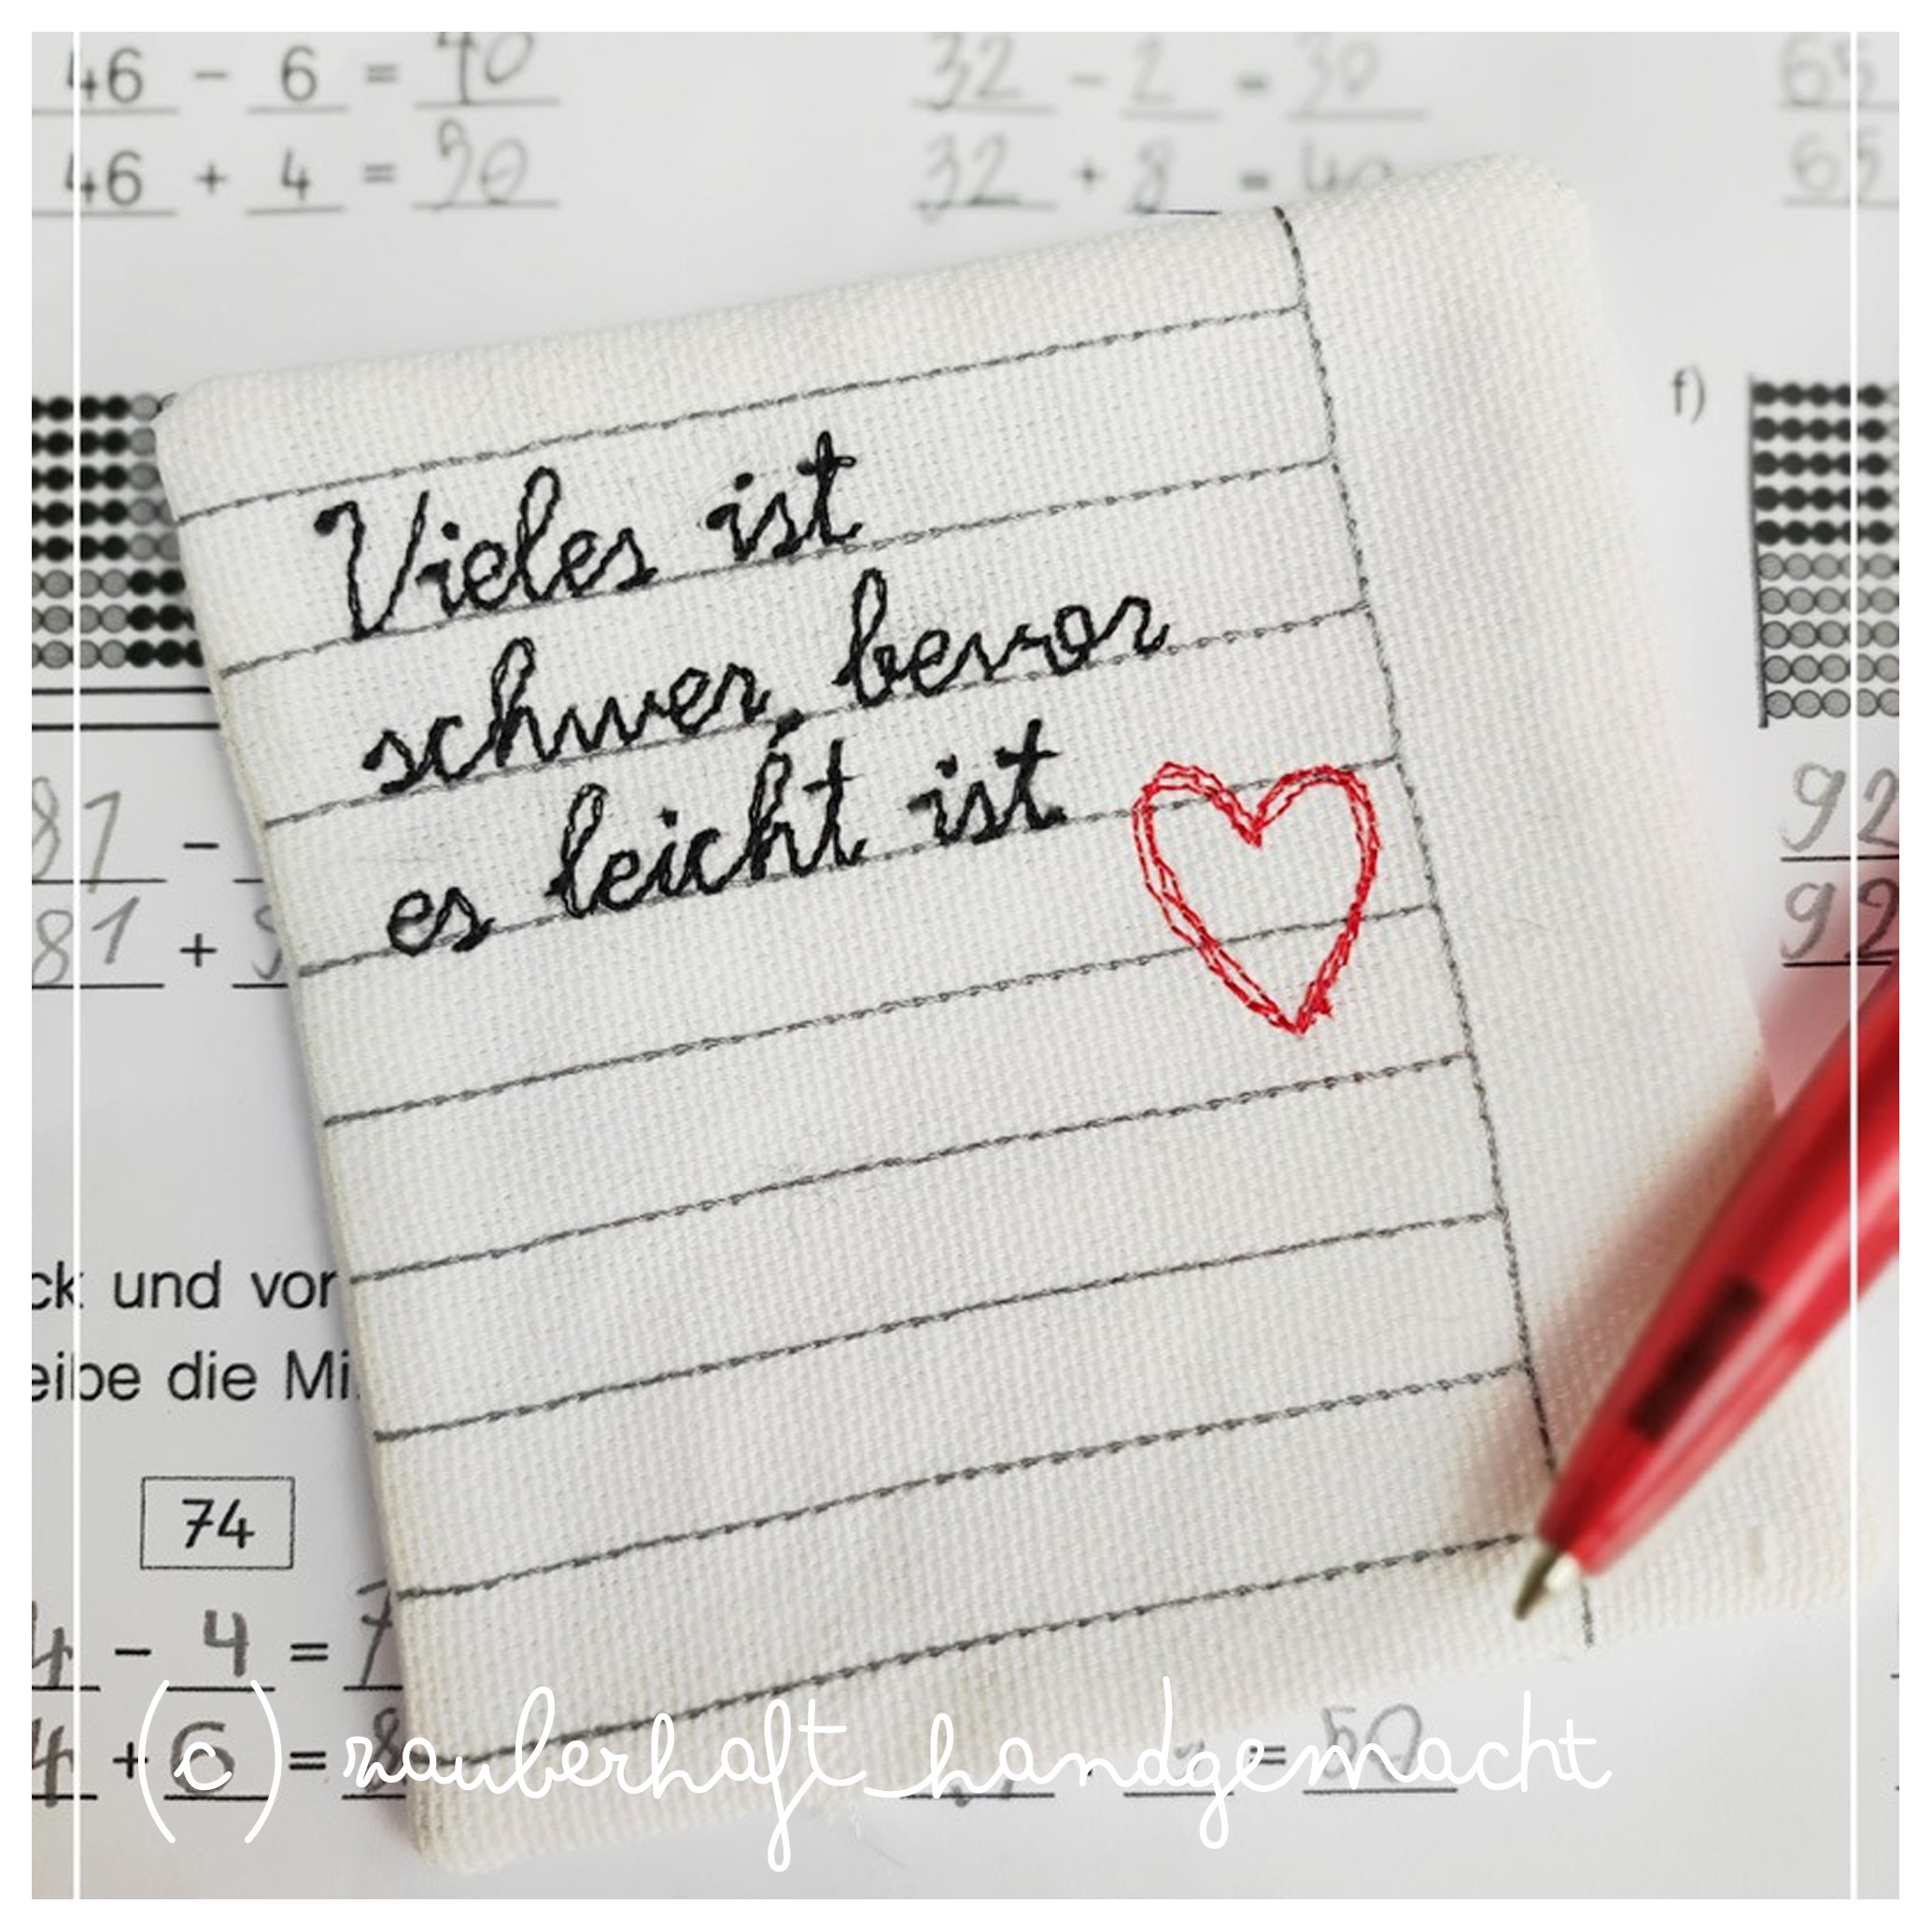 46 - 6 = 40
46 + 4 = 50
32 - 2 = 30
32 + 8 = 40
65
65
Vieles ist
schwer, bevor
es leicht ist
f)
81 -
81 +
92
92
ck und vor
eibe die Mi
74
4 - 4 = 7
4 + 6 = 8
= 50
(c) zauberhaft_handgemacht